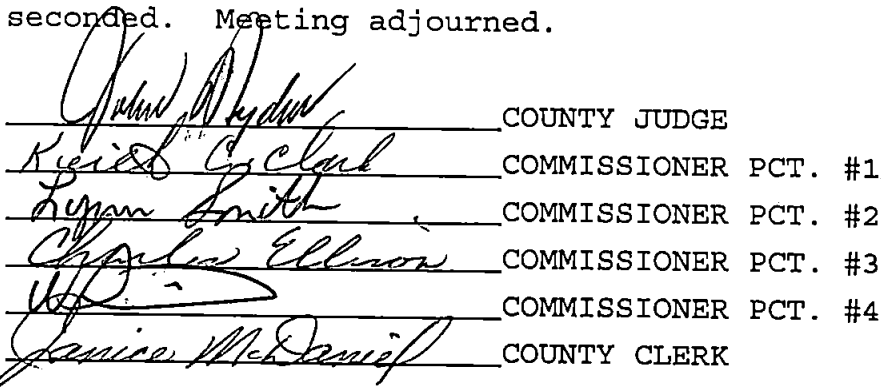 seconded. Meeting adjourned.
John COUNTY JUDGE
Clark COMMISSIONER PCT. #1
Lynn Smith COMMISSIONER PCT. #2
Charles Ellison COMMISSIONER PCT. #3
COMMISSIONER PCT. #4
Janice McDaniel COUNTY CLERK